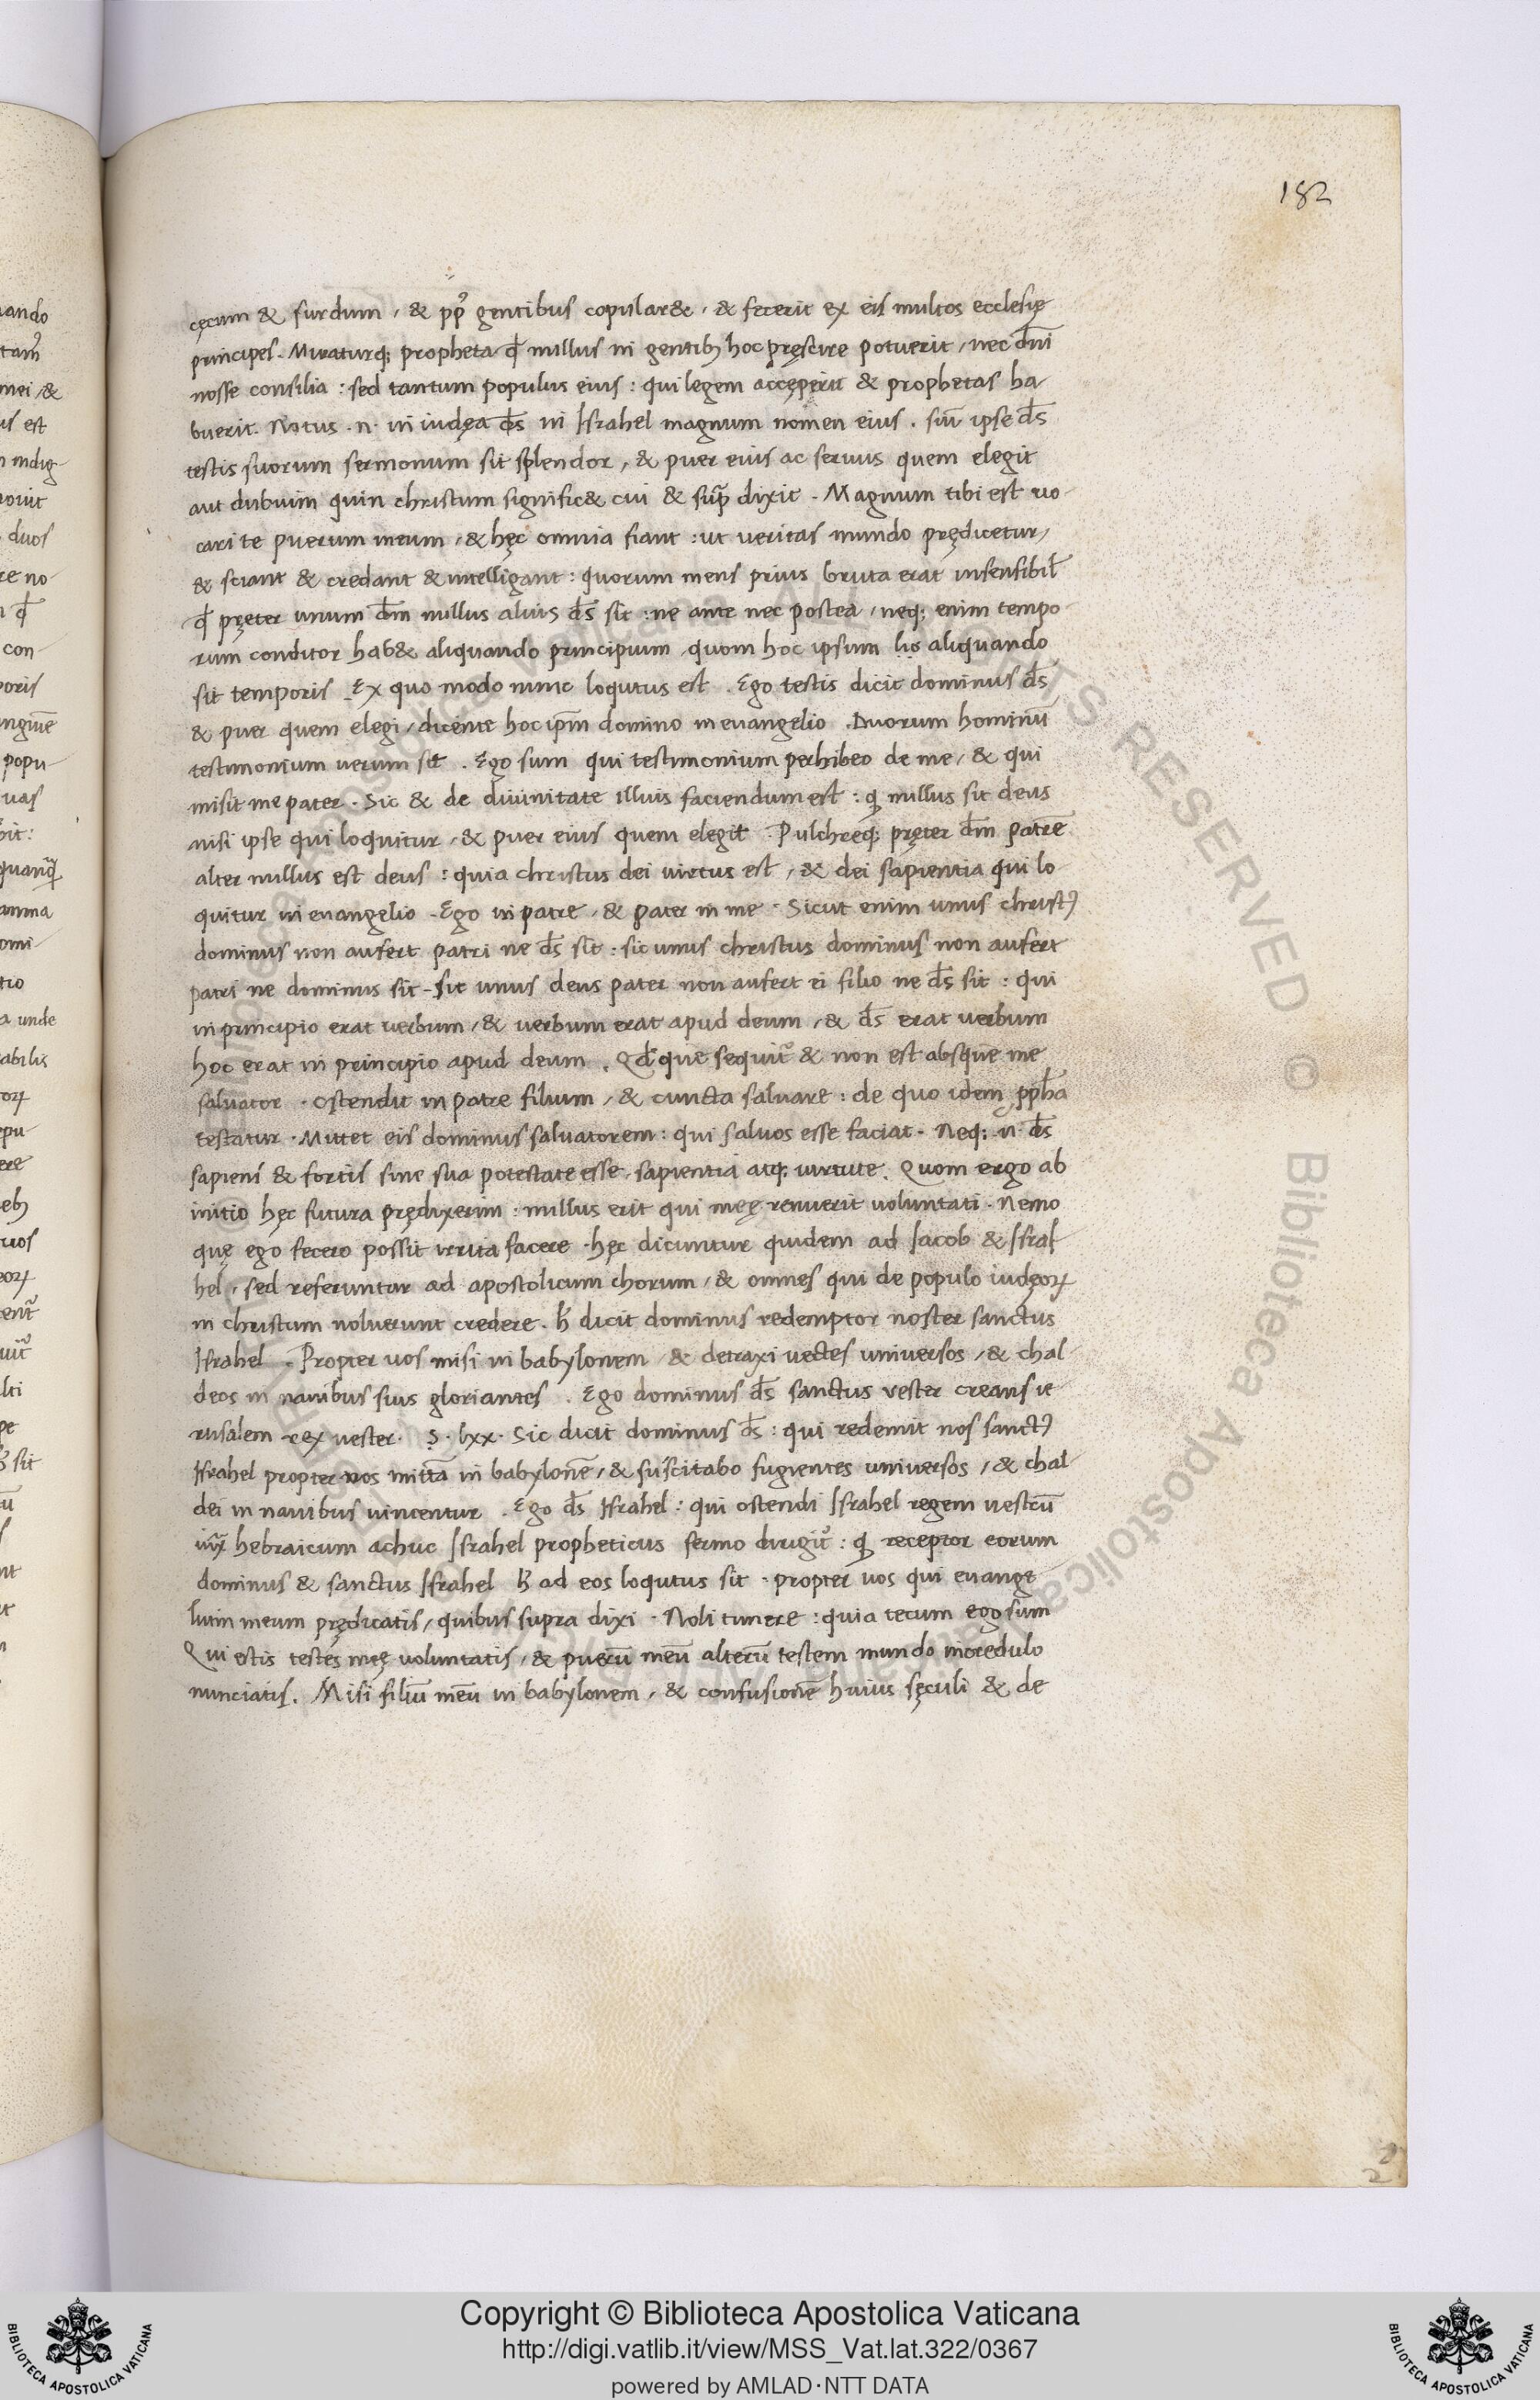 182
cęcum & surdum, & pp̄ gentibus copular&, & fecerit ex eis multos ecclesię
principes. Miraturq; propheta qđ nullus in gentib; hoc pręscire potuerit, nec dn̄i
nosse consilia : sed tantum populus eius : qui legem accęperit & prophetas ha-
buerit. Notus .n. in iudęa d̄s in Israhel magnum nomen eius . ipse d̄s
testis suorum sermonum sit splendor, & puer eius ac seruus quem elegit
aut dubium quin christum signific& cui & sup̄ dixit . Magnum tibi est uo-
cari te puerum meum, & hęc omnia fiant : ut ueritas mundo prędicetur,
& sciant & credant & intelligant : quorum mens prius bruta erat insensibil̄
qđ pręter unum d̄m nullus alius d̄s sit : ne ante nec postea, neq; enim tempo-
rum conditor hab& aliquando principium, quom hoc ipsum aliquando
sit temporis . Ex quo modo nunc loqutus est . Ego testis dicit dominus d̄s
& puer quem elegi, dicente hoc ip̄m domino in euangelio . Duorum hominū
testimonium uerum sit . Ego sum qui testimonium perhibeo de me, & qui
misit me pater . Sic & de diuinitate illius faciendum est : q nullus sit deus
nisi ipse qui loquitur, & puer eius quem elegit . Pulchreq; pręter d̄m patrē
alter nullus est deus : quia christus dei uirtus est, & dei sapientia qui lo-
quitur in euangelio . Ego in patre, & pater in me . Sicut enim unus christꝰ
dominus non aufert patri ne d̄s sit : sic unus christus dominus non aufert
patri ne dominus sit . sit unus deus pater non aufert ei filio ne d̄s sit : qui
in principio erat uerbum, & uerbum erat apud deum, & d̄s erat uerbum
hoc erat in principio apud deum . Qđ que sequit̄ & non est absque me
saluator . ostendit in patre filium, & cuncta saluare : de quo idem pp̄ha
testatur . Mittet eis dominus saluatorem : qui saluos esse faciat . Neq; .n. d̄s
sapiens & fortis sine sua potestate esse, sapientia atq; uirtute . Quom ergo ab
initio hęc futura prędixerim : nullus erit qui meę renuerit uoluntati . Nemo
quę ego fecero possit irrita facere . hęc dicuntur quidem ad Iacob & Isra-
hel, sed referuntur ad apostolicum chorum, & omnes qui de populo iudęoꝝ
in christum uoluerunt credere . h̄ dicit dominus redemptor noster sanctus
Israhel . Propter uos misi in babylonem, & detraxi uectes uniuersos, & chal-
deos in nauibus suis gloriantes . Ego dominus d̄s sanctus vester creans ie-
rusalem rex uester . S . lxx . Sic dicit dominus d̄s : qui redemit nos sanctꝰ
Israhel propter uos mittā in babylonē, & suscitabo fugientes uniuersos, & chal-
dei in nauibus uincentur . Ego d̄s Israhel : qui ostendi Israhel regem uestrū
iux̄ hebraicum adhuc Israhel propheticus sermo dirigit̄ : q receptor eorum
dominus & sanctus Israhel h̄ ad eos loqutus sit . propter uos qui euange-
lium meum prędicatis, quibus supra dixi . Noli timere : quia tecum ego sum
Qui estis testes meę uoluntatis, & puerū meū alterū testem mundo incredulo
nunciatis . Misi filiū meū in babylonem, & confusionē huius sęculi & de
Copyright © Biblioteca Apostolica Vaticana
http://digi.vatlib.it/view/MSS_Vat.lat.322/0367
powered by AMLAD·NTT DATA
BIBLIOTECA APOSTOLICA VATICANA
BIBLIOTECA APOSTOLICA VATICANA